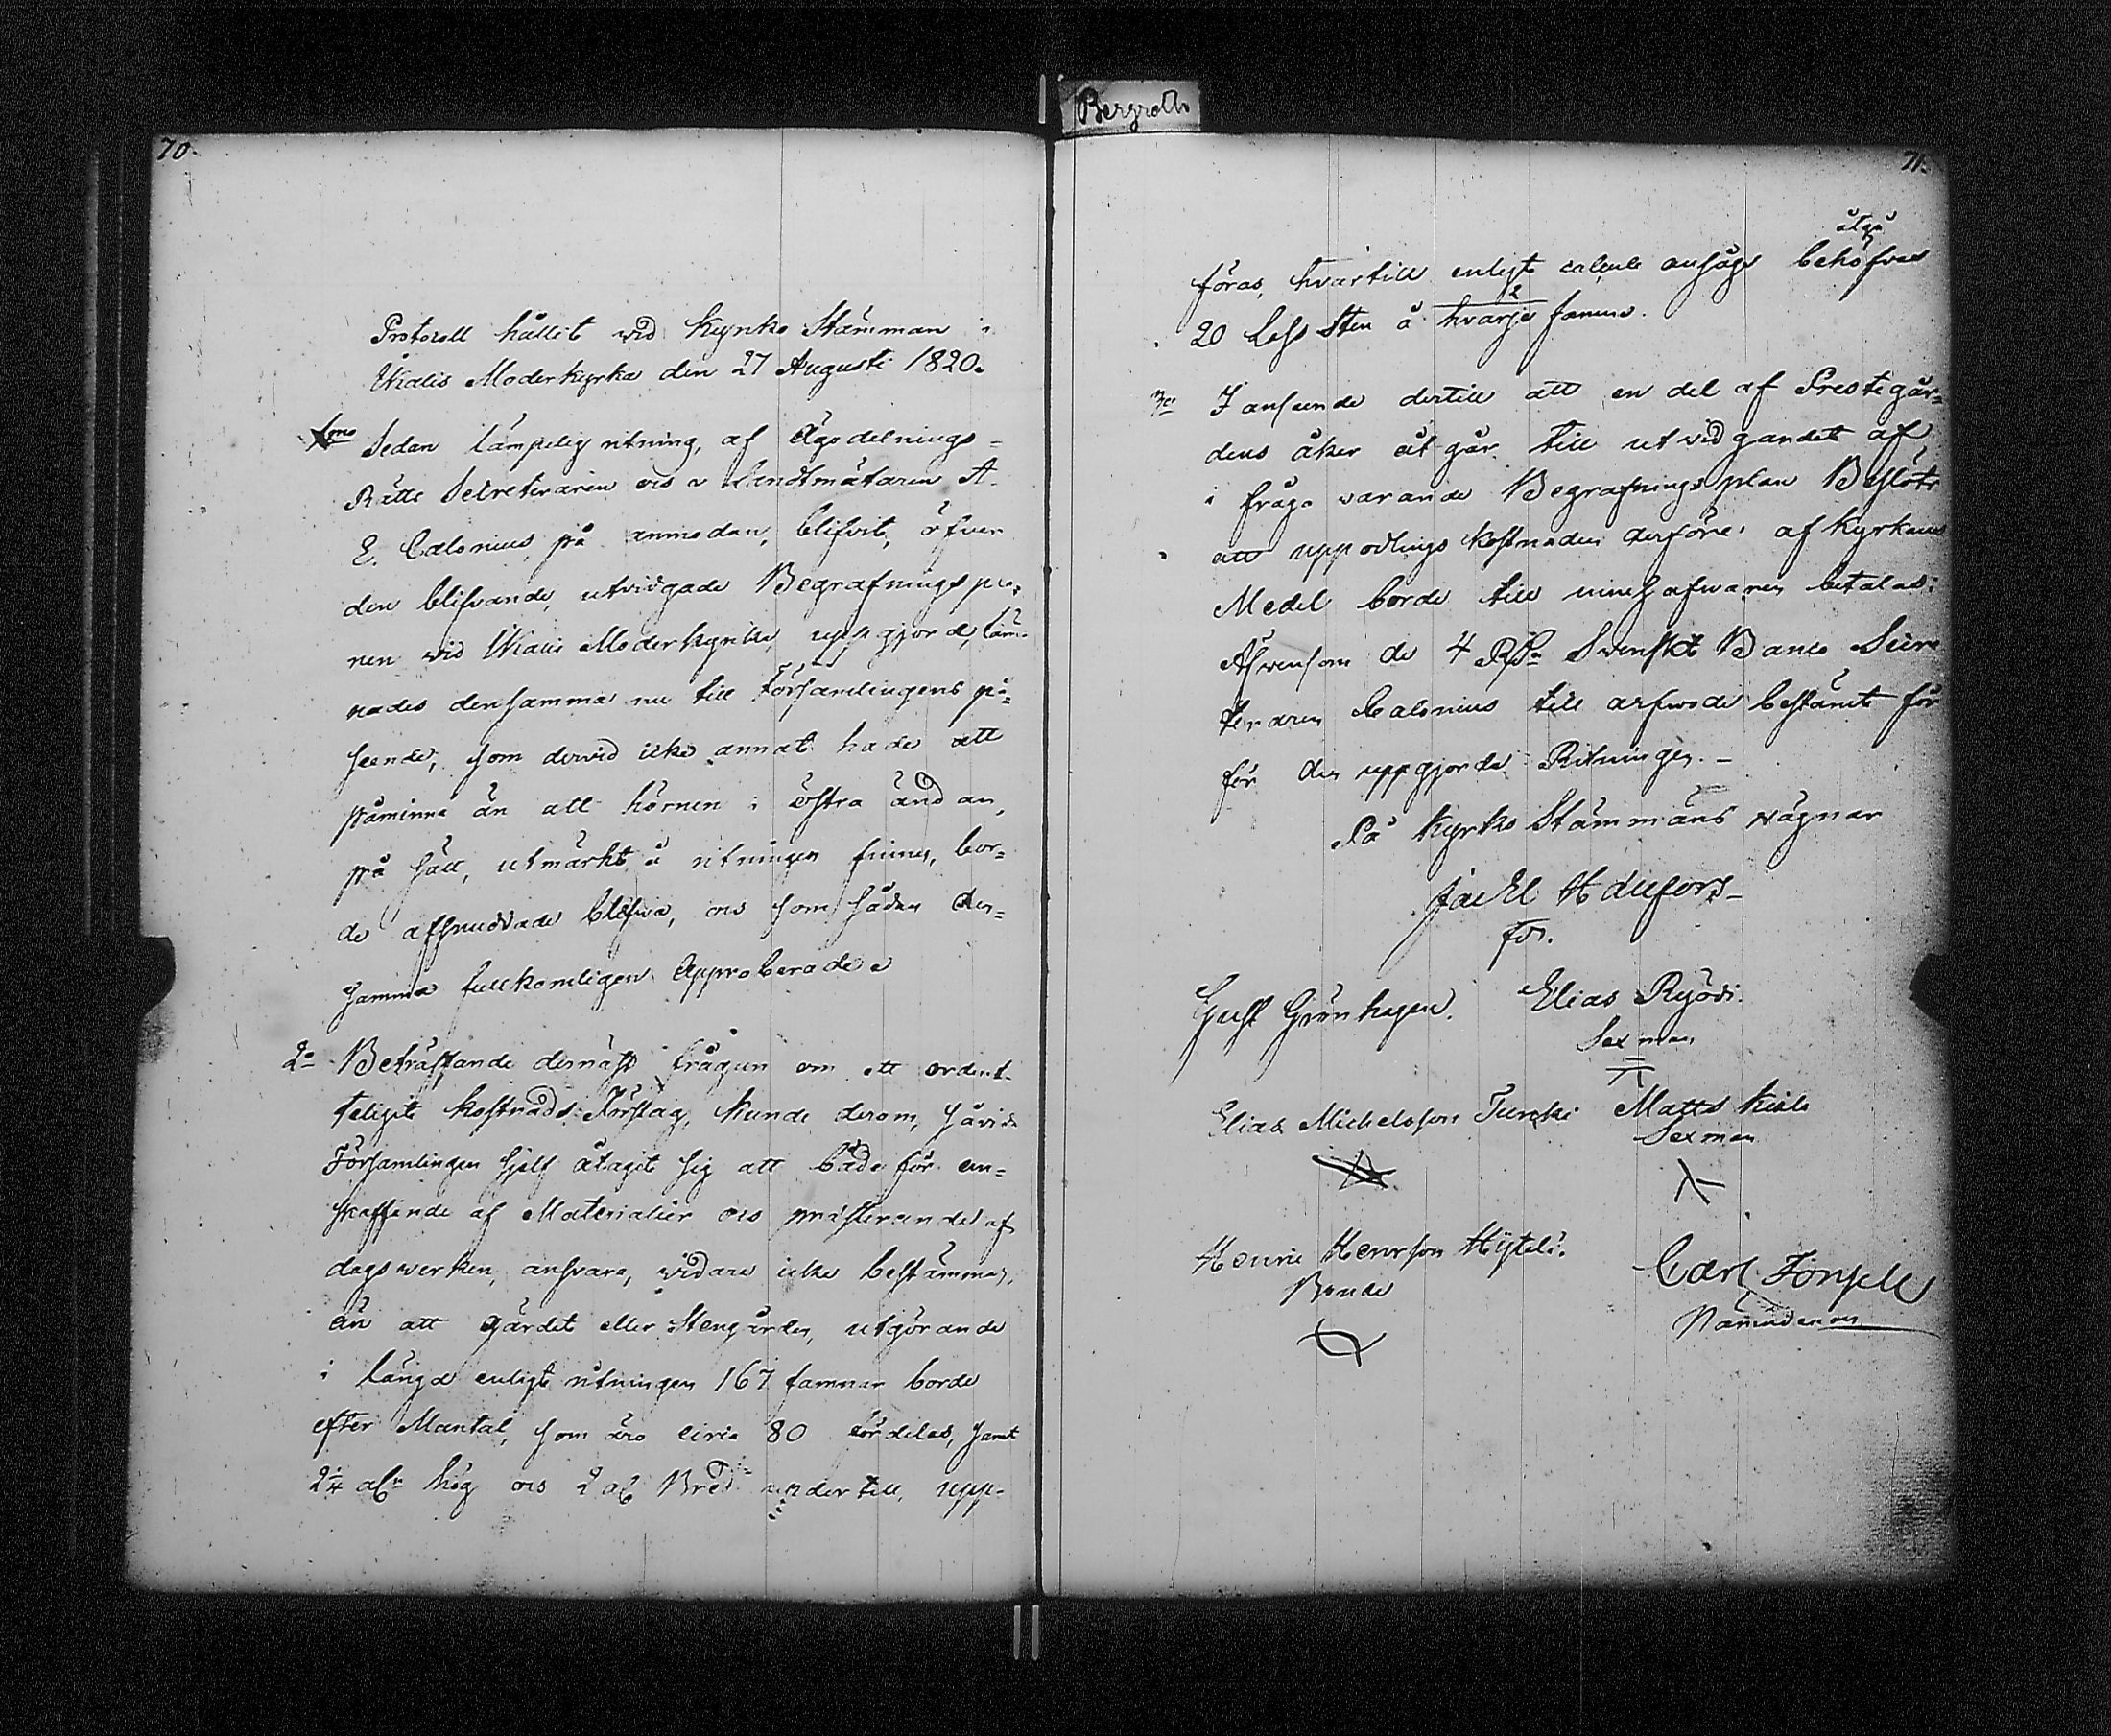 Bergroth
70.
Protocoll hållit wid Kyrko Stämman i
Ikalis Moderkyrka den 27 Augusti 1820.
1mo Sedan lämpelig ritning, af Ägodelnings-
Rätts Secreteraren och Landtmätaren A.
E. Calonius på anmodan, blifvit, öfver
den blifvande, utvidgade Begrafnings pla-
nen wid Ikalis Moderkyrka, uppgjord, läm-
nades densamma nu till Församlingens på-
seende, som dervid icke annat hade att
påminna än att hörnen i östra ändan,
på sätt, utmärkt å ritningen finnes, bor-
de afsnuddade blifva, och som sådan den-
samma fullkomligen Approberades
2o Beträffande dernäst frågan om ett ordent-
teligit kostnads Förslag, kunde derom, såvida
Församlingen sjelf åtagit sig att både för an-
skaffande af Materialier och præsterandet af
dagswerken, ansvara, vidare icke bestämmas,
än att gärdet eller Stengärden, utgörande
i längd enligt ritningen 167 famnar borde
efter Mantal, som äro circa 80 fördelas, samt
2¼ aln hög och 2 al. Bred undertill, upp-
71.
åtgå
föras, hvartill enligt calcule ansågs behöfvas
20 Lass Sten å hvarje famn.
2
3o I anseende dertill att en del af Prestegår-
dens åker åtgår till utvidgandet af
i fråga varande Begrafningsplan Beslöts
att uppodlings kostnaden derföre af Kyrkans
Medel borde till innehafwaren betalas;
Äfvensom de 4 Rdr Svenskt Banco Secre
teraren Calonius till arfwode bestämt för
för den uppgjorda Ritningen.
På Kyrko Stämmans wägnar
Gust Grönhagen.
Elias Ryödi.
Sexman
Elias Michelsson Turcki
Matts Kiala
Sexman
Henric Henrsson Hyteli.
Bonde
Carl Forsell
Nämndeman